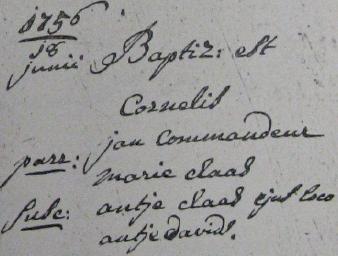 1756
18 junii Baptiz: est
Cornelis
parr: jan Commandeur
marie claas
susc: antje claas ejus loco
antje davids.